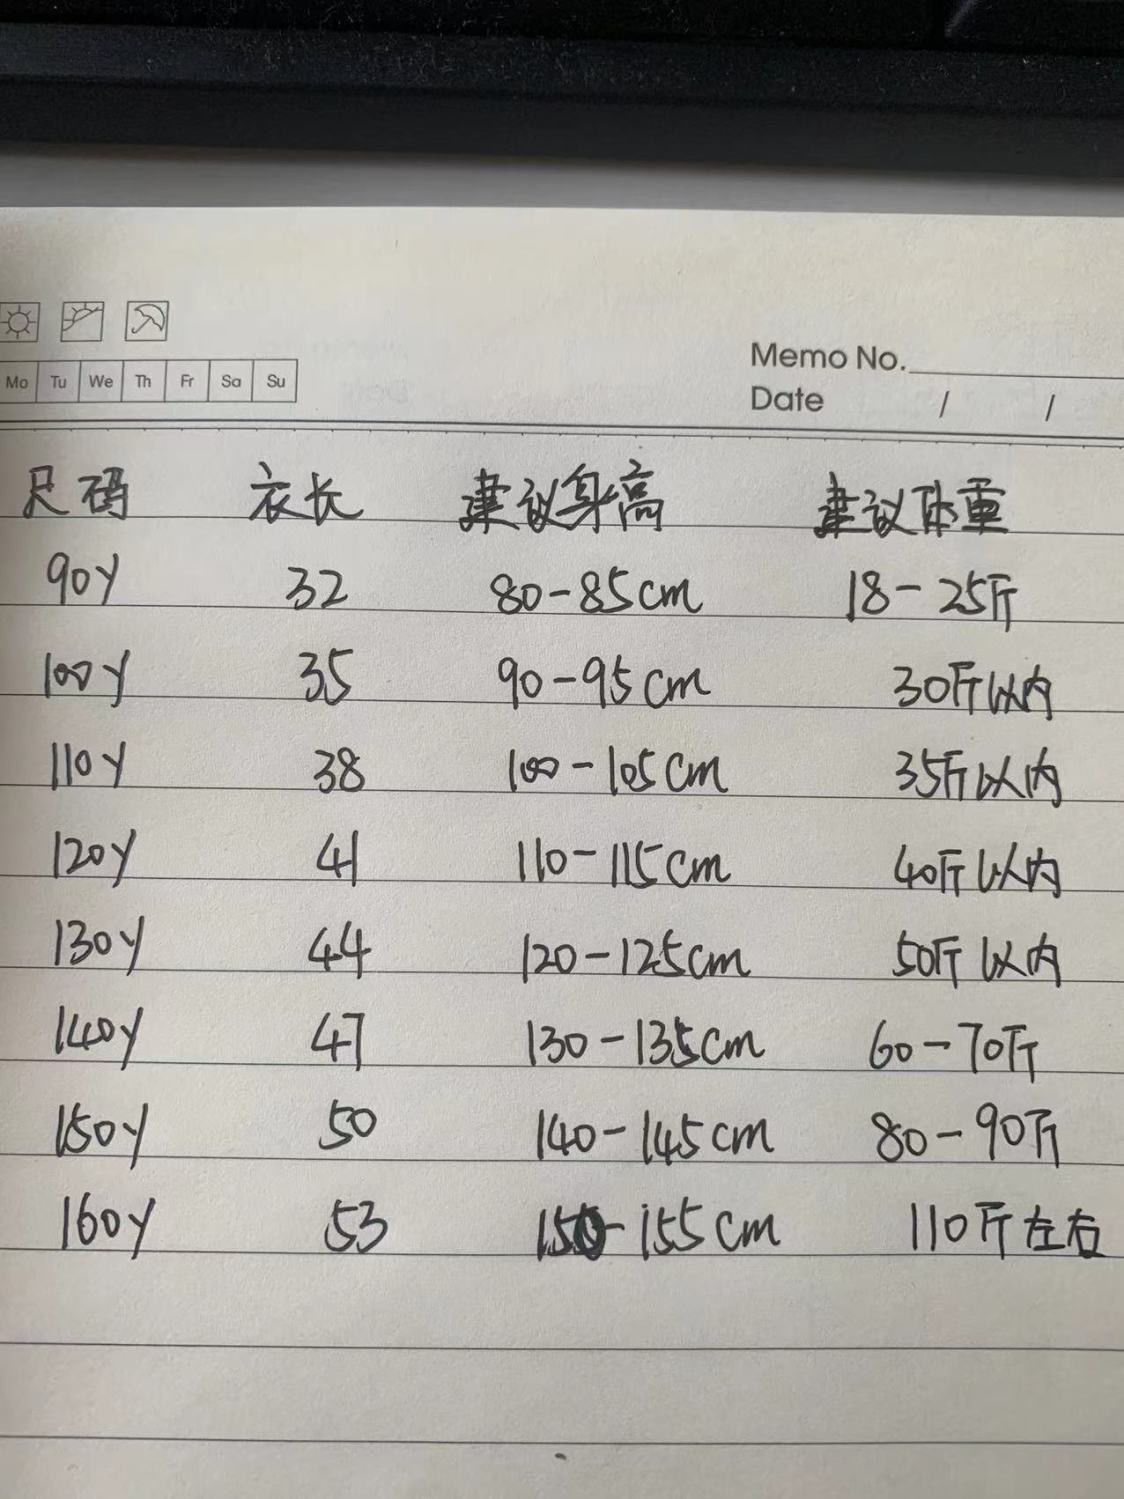 Memo No.
Mo Tu We Th Fr Sa Su
Date / /
尺码 衣长 建议身高 建议体重
90Y 32 80-85cm 18-25斤
100Y 35 90-95cm 30斤以内
110Y 38 100-105cm 35斤以内
120Y 41 110-115cm 40斤以内
130Y 44 120-125cm 50斤以内
140Y 47 130-135cm 60-70斤
150Y 50 140-145cm 80-90斤
160Y 53 150-155cm 110斤左右